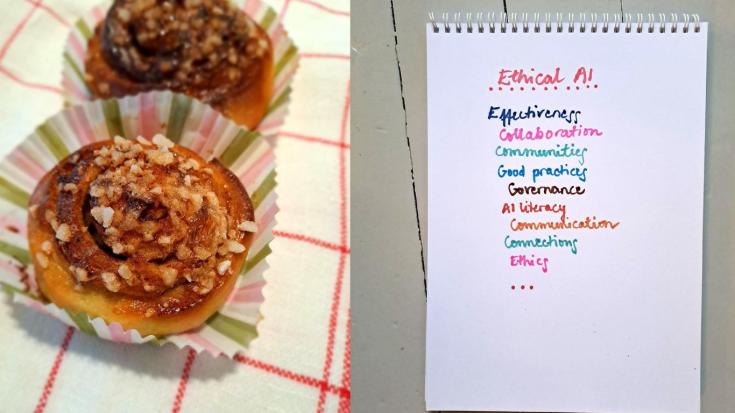 Ethical AI
Effectiveness
Collaboration
Communities
Good practices
Governance
AI literacy
Communication
Connections
Ethics
...